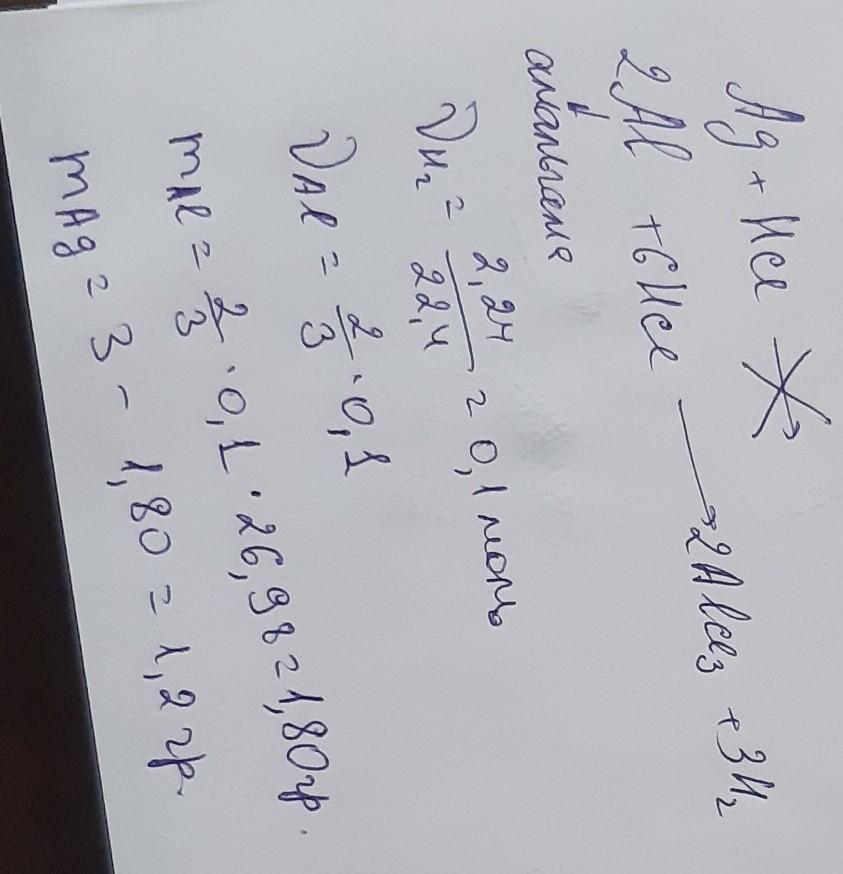 Ag + HCl ↛
2Al + 6HCl → 2AlCl₃ + 3H₂
↓
амальгама
ν H₂ = 2,24/22,4 = 0,1 моль
ν Al = 2/3 · 0,1
m Al = 2/3 · 0,1 · 26,98 = 1,80 гр.
m Ag = 3 - 1,80 = 1,2 гр.